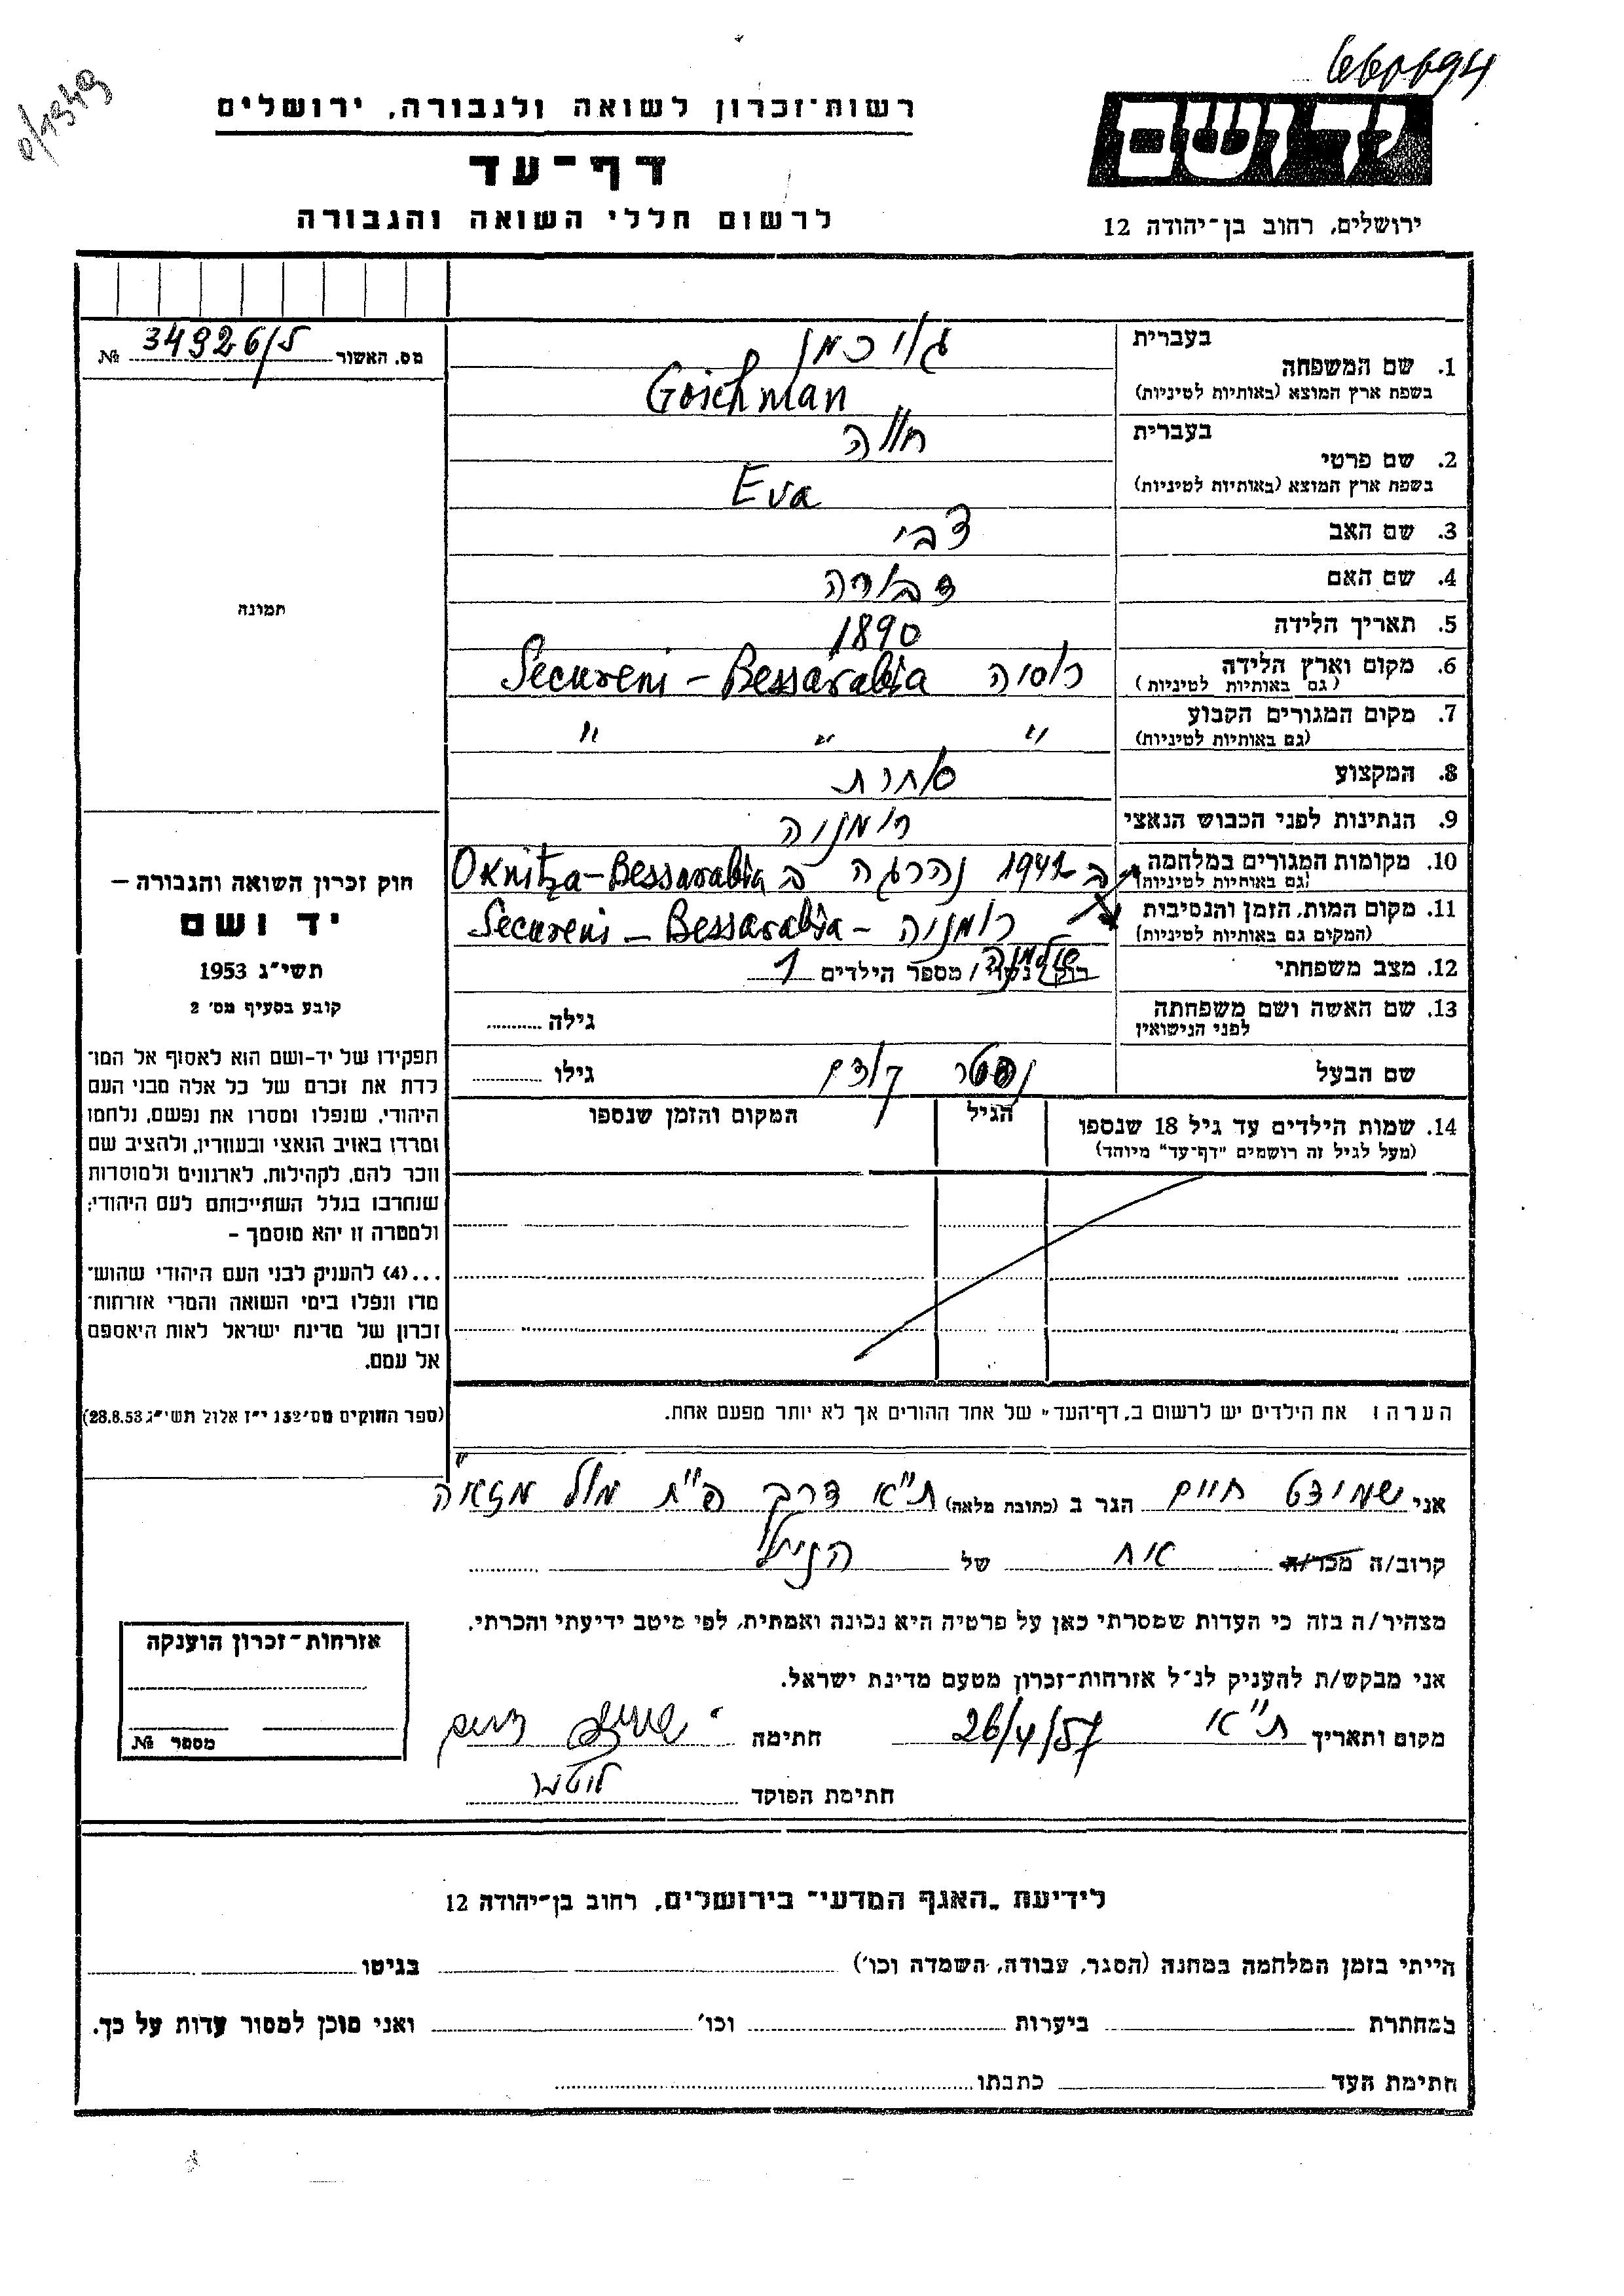 660694
0/1349
רשות־זכרון לשואה ולגבורה, ירושלים
יד ושם
דף־עד
לרשום חללי השואה והגבורה
ירושלים, רחוב בן־יהודה 12
מס. האשור 34926/ל №
תמונה
חוק זכרון השואה והגבורה —
יד ושם
תשי״ג 1953
קובע בסעיף מס׳ 2
תפקידו של יד-ושם הוא לאסוף אל המו־
לדת את זכרם של כל אלה מבני העם
היהודי, שנפלו ומסרו את נפשם, נלחמו
ומרדו באויב הנאצי ובעוזריו, ולהציב שם
וזכר להם, לקהילות, לארגונים ולמוסדות
שנחרבו בגלל השתייכותם לעם היהודי;
ולמטרה זו יהא מוסמך –
...(4) להעניק לבני העם היהודי שהוש־
מדו ונפלו בימי השואה והמרי אזרחות־
זכרון של מדינת ישראל לאות היאספם
אל עמם.
(ספר החוקים מס׳ 132 י״ז אלול תשי״ג 28.8.53)
1. שם המשפחה בעברית גויכמן
בשפת ארץ המוצא (באותיות לטיניות) Goichman
2. שם פרטי בעברית חווה
בשפת ארץ המוצא (באותיות לטיניות) Eva
3. שם האב צבי
4. שם האם דבורה
5. תאריך הלידה 1890
6. מקום וארץ הלידה (גם באותיות לטיניות) רוסיה Secureni – Bessarabia
7. מקום המגורים הקבוע (גם באותיות לטיניות) " " "
8. המקצוע סוחרת
9. הנתינות לפני הכבוש הנאצי רומניה
10. מקומות המגורים במלחמה (גם באותיות לטיניות) ב 1941 נהרגה ב Oknitza – Bessarabia
11. מקום המות, הזמן והנסיבות (המקום גם באותיות לטיניות) רומניה – Secureni – Bessarabia
12. מצב משפחתי רוק / נשוי / מספר הילדים 1
אלמנה
13. שם האשה ושם משפחתה לפני הנישואין גילה
שם הבעל נפטר קודם גילו
14. שמות הילדים עד גיל 18 שנספו הגיל המקום והזמן שנספו
(מעל לגיל זה רושמים "דף־עד" מיוחד)
הערה: את הילדים יש לרשום ב„דף־העד" של אחד ההורים אך לא יותר מפעם אחת.
אני שמידט חיים הגר ב (כתובת מלאה) ת"א דרך פ"ת מול
קרוב/ה מכר/ה אח של הנ"ל
מצהיר/ה בזה כי העדות שמסרתי כאן על פרטיה היא נכונה ואמתית, לפי מיטב ידיעתי והכרתי.
אני מבקש/ת להעניק לנ״ל אזרחות־זכרון מטעם מדינת ישראל.
מקום ותאריך ת"א 26/4/57 חתימה
חתימת הפוקד
אזרחות־זכרון הוענקה
מספר №
לידיעת „האגף המדעי״ בירושלים, רחוב בן־יהודה 12
הייתי בזמן המלחמה במחנה (הסגר, עבודה, השמדה וכו׳) בגיטו
במחתרת ביערות וכו׳ ואני מוכן למסור עדות על כך.
חתימת העד כתבתו